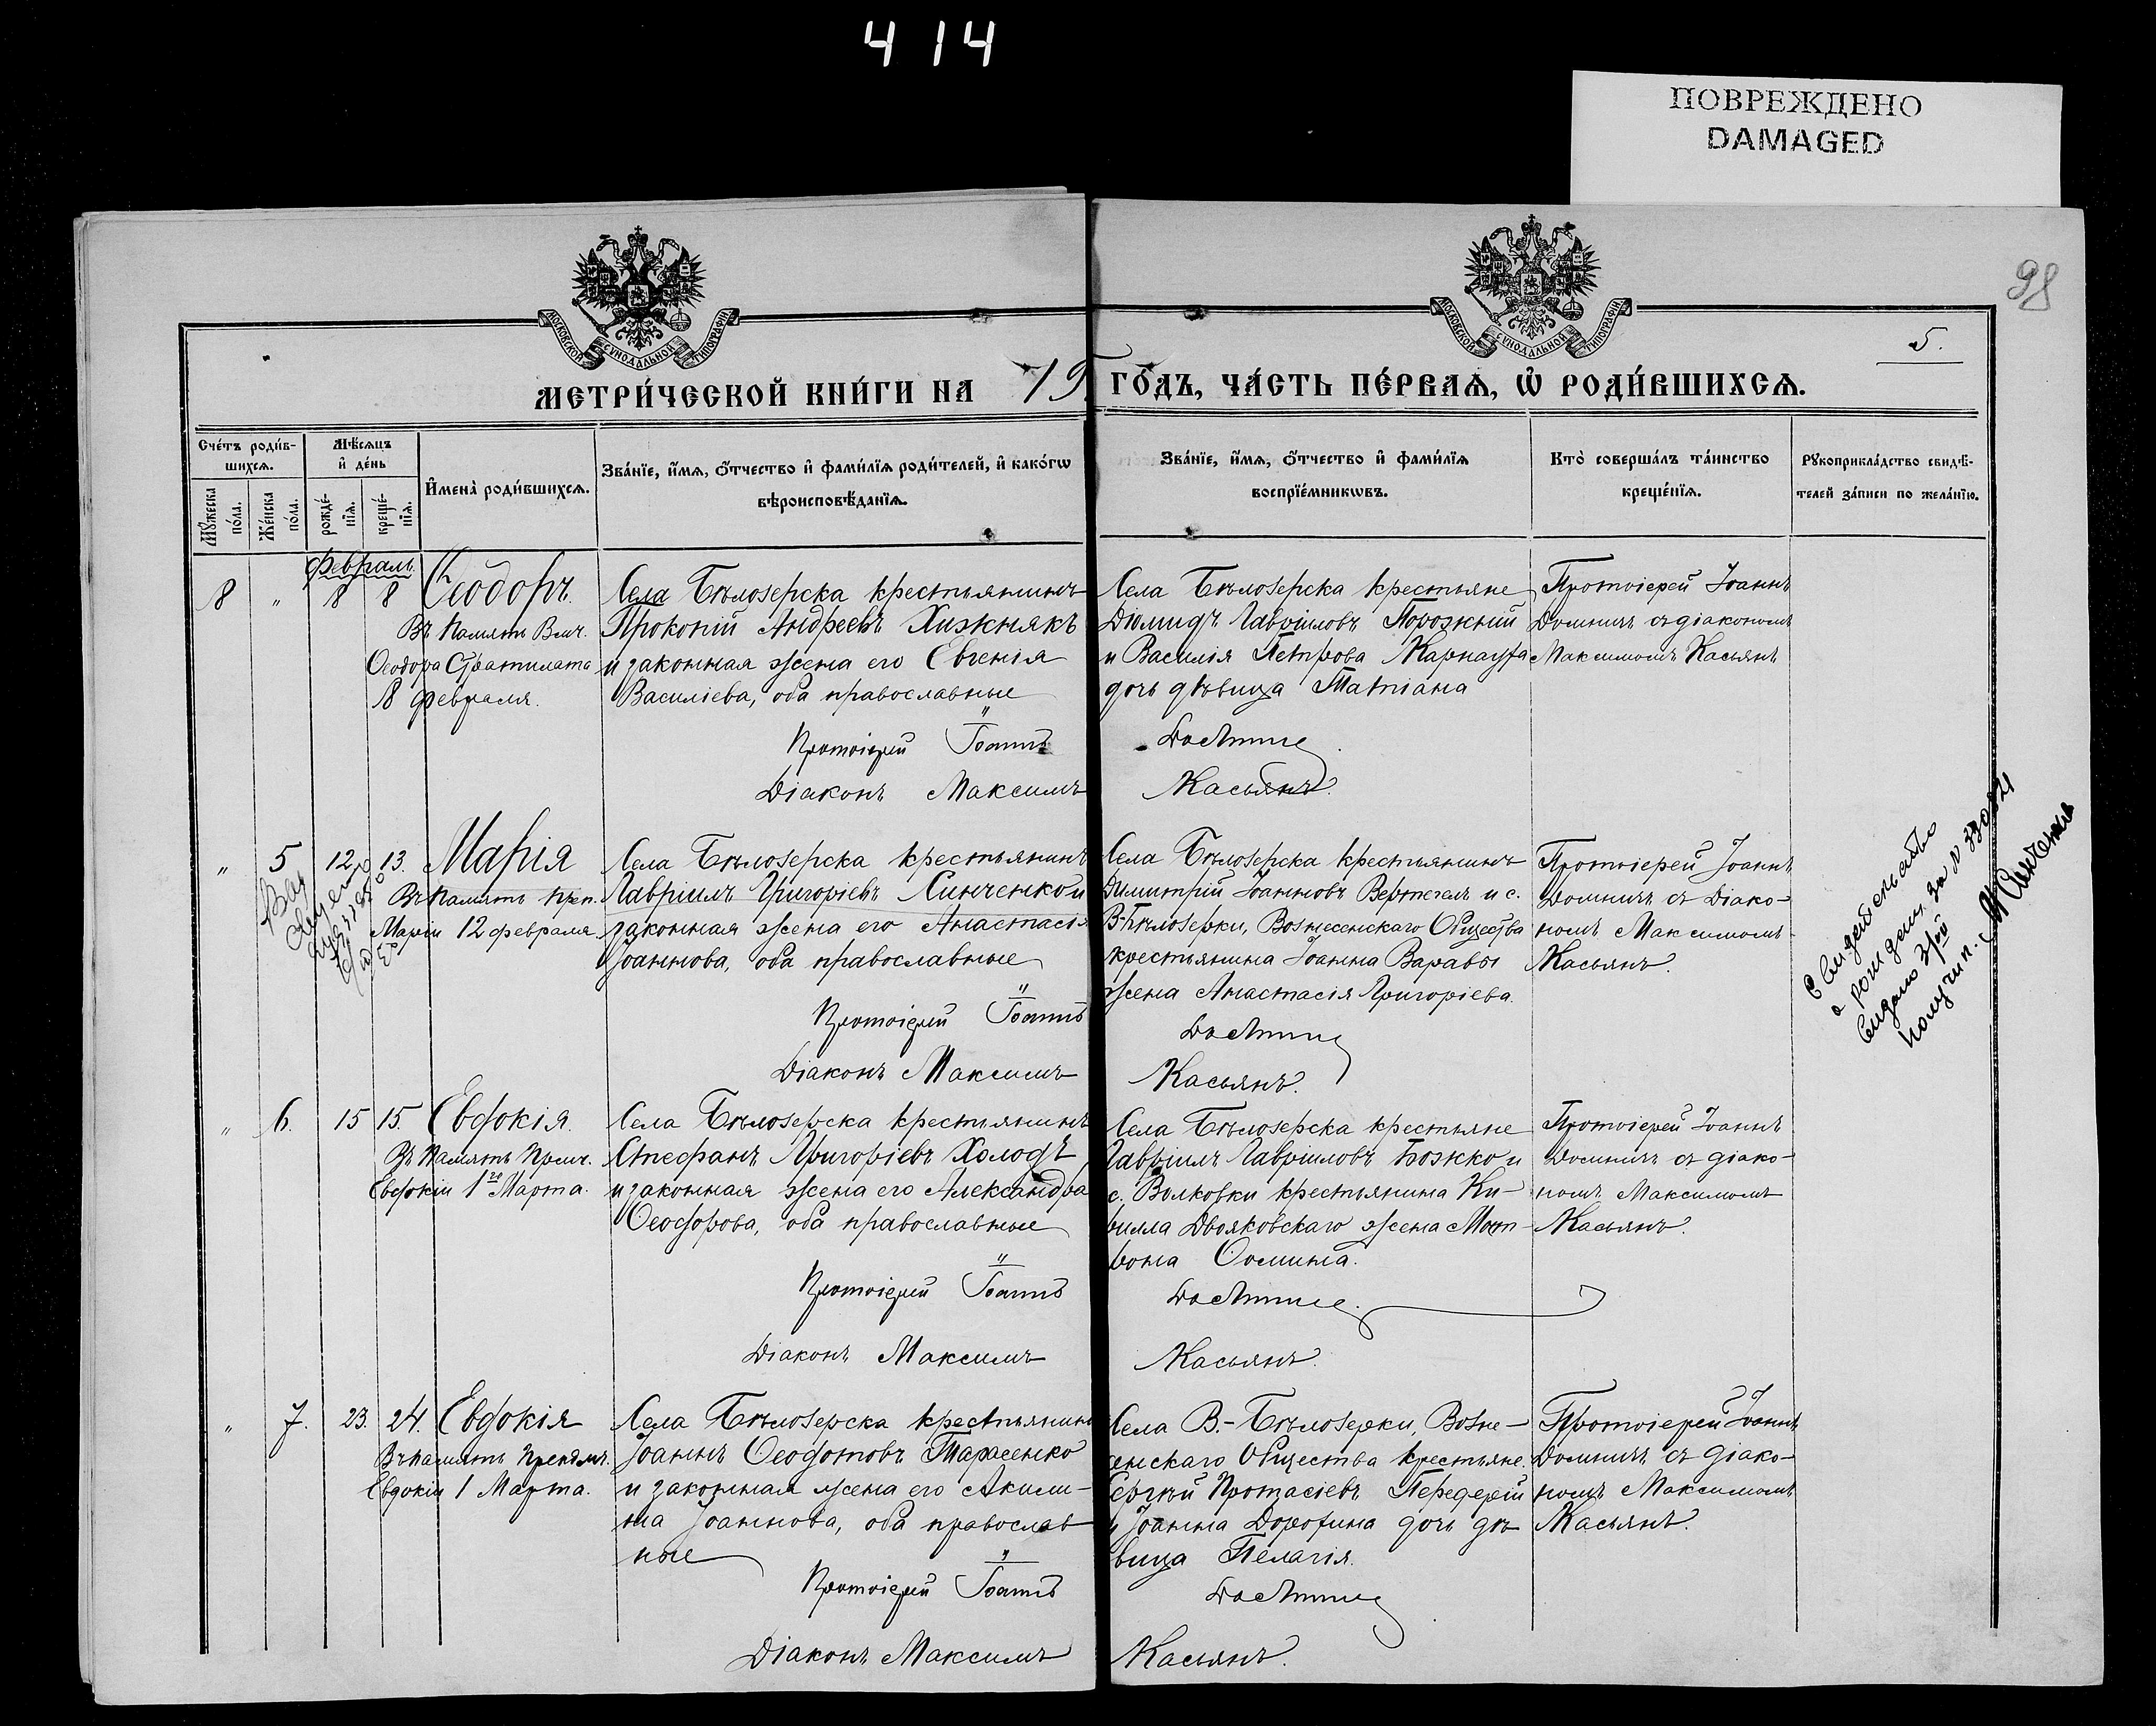 414
ПОВРЕЖДЕНО
DAMAGED
98
МОСКОВСКОЙ СѴНОДАЛЬНОЙ ТИПОГРАФІИ
МОСКОВСКОЙ СѴНОДАЛЬНОЙ ТИПОГРАФІИ
5.
МЕТРИ́ЧЕСКОЙ КНИ́ГИ НА 19 ГО́ДЪ, ЧА́СТЬ ПЕ́РВАѦ, Ѡ҆ РОДИ́ВШИХСѦ.
Сче́тъ роди́в-
шихсѧ.
Мꙋ́жеска
по́ла.
Же́нска
по́ла.
Мѣ́сѧцъ
и҆ де́нь
рожде́-
нїѧ.
креще́-
нїѧ.
И҆мена̀ роди́вшихсѧ.
Зва́нїе, и҆́мѧ, ѻ҆́тчество и҆ фами́лїѧ роди́телей, и҆ како́гѡ
вѣроисповѣ́данїѧ.
Зва́нїе, и҆́мѧ, ѻ҆́тчество и҆ фами́лїѧ
воспрїе́мникѡвъ.
Кто̀ соверша́лъ та́инство
креще́нїѧ.
Рꙋкоприкла́дство свидѣ́-
телей за́писи по жела́нїю.
Февраль
8 " 8 8 Ѳеодоръ.
Въ память Влмч.
Ѳеодора Стратилата
8 февраля.
Села Бѣлозерска крестьянинъ
Прокопій Андреевъ Хижнякъ
и законная жена его Евгенія
Василіева, оба православные
Протоіерей Іоаннъ
Діаконъ Максимъ
Села Бѣлозерска крестьяне
Діомидъ Гавріиловъ Порожній
и Василія Петрова Карнауха
дочь дѣвица Татіана
Касьянъ.
Протоіерей Іоаннъ
съ діакономъ
Максимомъ Касьянъ
" 5 12 13. Марія
Въ память преп.
Маріи 12 февраля
Села Бѣлозерска крестьянинъ
Гавріилъ Григоріевъ Хинченко и
законная жена его Анастасія
Іоаннова, оба православные
Протоіерей Іоаннъ
Діаконъ Максимъ
Села Бѣлозерска крестьянинъ
Димитрій Іоанновъ Вертегелъ и с.
В-Бѣлозерки, Вознесенскаго Общества
крестьянина Іоанна Варавы
жена Анастасія Григоріева.
Касьянъ.
Протоіерей Іоаннъ
съ Діако-
номъ Максимомъ
Касьянъ.
Свидетельство
о рождении за №
выдано
получил.
" 6. 15 15. Евдокія.
Въ память Прмч.
Евдокіи 1го Марта.
Села Бѣлозерска крестьянинъ
Стефанъ Григоріевъ Холодъ
и законная жена его Александра
Ѳеодорова, оба православные
Протоіерей Іоаннъ
Діаконъ Максимъ
Села Бѣлозерска крестьяне
Гавріилъ Гавріиловъ Божко и
с. Волковки крестьянина Ки-
рилла Двояковскаго жена Мат-
рона Ѳомина.
Касьянъ.
Протоіерей Іоаннъ
съ діако-
номъ Максимомъ
Касьянъ.
" 7. 23. 24. Евдокія
Въ память
Евдокіи 1 Марта.
Села Бѣлозерска крестьянинъ
Іоаннъ Ѳеодотовъ Тарасенко
и законная жена его Акили-
на Іоаннова, оба православ
ные
Протоіерей Іоаннъ
Діаконъ Максимъ
Села В.-Бѣлозерки, Возне-
сенскаго Общества крестьяне
Сергѣй Протасіевъ Передерій
и Іоанна Дорохина дочь дѣ
вица Пелагія.
Касьянъ.
Протоіерей Іоаннъ
съ діако-
номъ Максимомъ
Касьянъ.